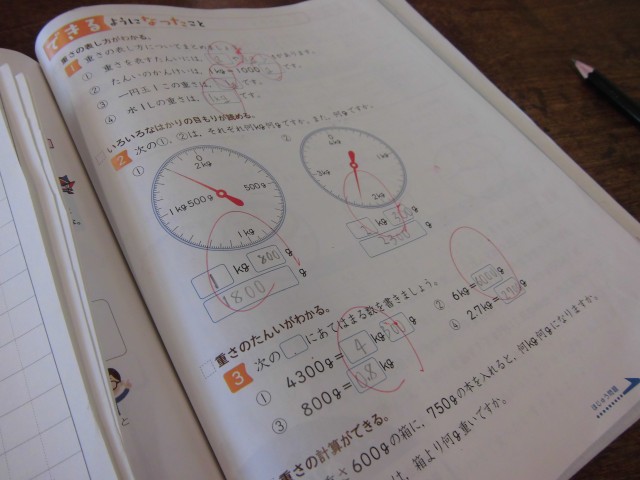 できるようになったこと
重さの表し方がわかる。
1 重さの表し方についてまとめましょう。
① 重さを表すたんいには、があります。
② たんいのかんけいは、1kg=1000です。
③ 一円玉1この重さは、です。
④ 水1Lの重さは、です。
いろいろなはかりの目もりが読める。
2 次の①、②は、それぞれ何kg何gですか。また、何gですか。
① ②
0 2kg 500g 1kg 1kg500g
0 4kg 1kg 2kg 3kg
1 kg 800 g
1800 g
2 kg 300 g
2300 g
重さのたんいがわかる。
3 次の□にあてはまる数を書きましょう。
① 4300g=4kg300g
② 6kg=6000g
③ 800g=0.8kg
④ 2.7kg=2700g
重さの計算ができる。
重さ600gの箱に、750gの本を入れると、何kg何gになりますか。
は、箱より何g重いですか。
ほじゅう問題